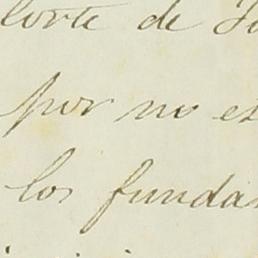 Corte de
por no es
los funda